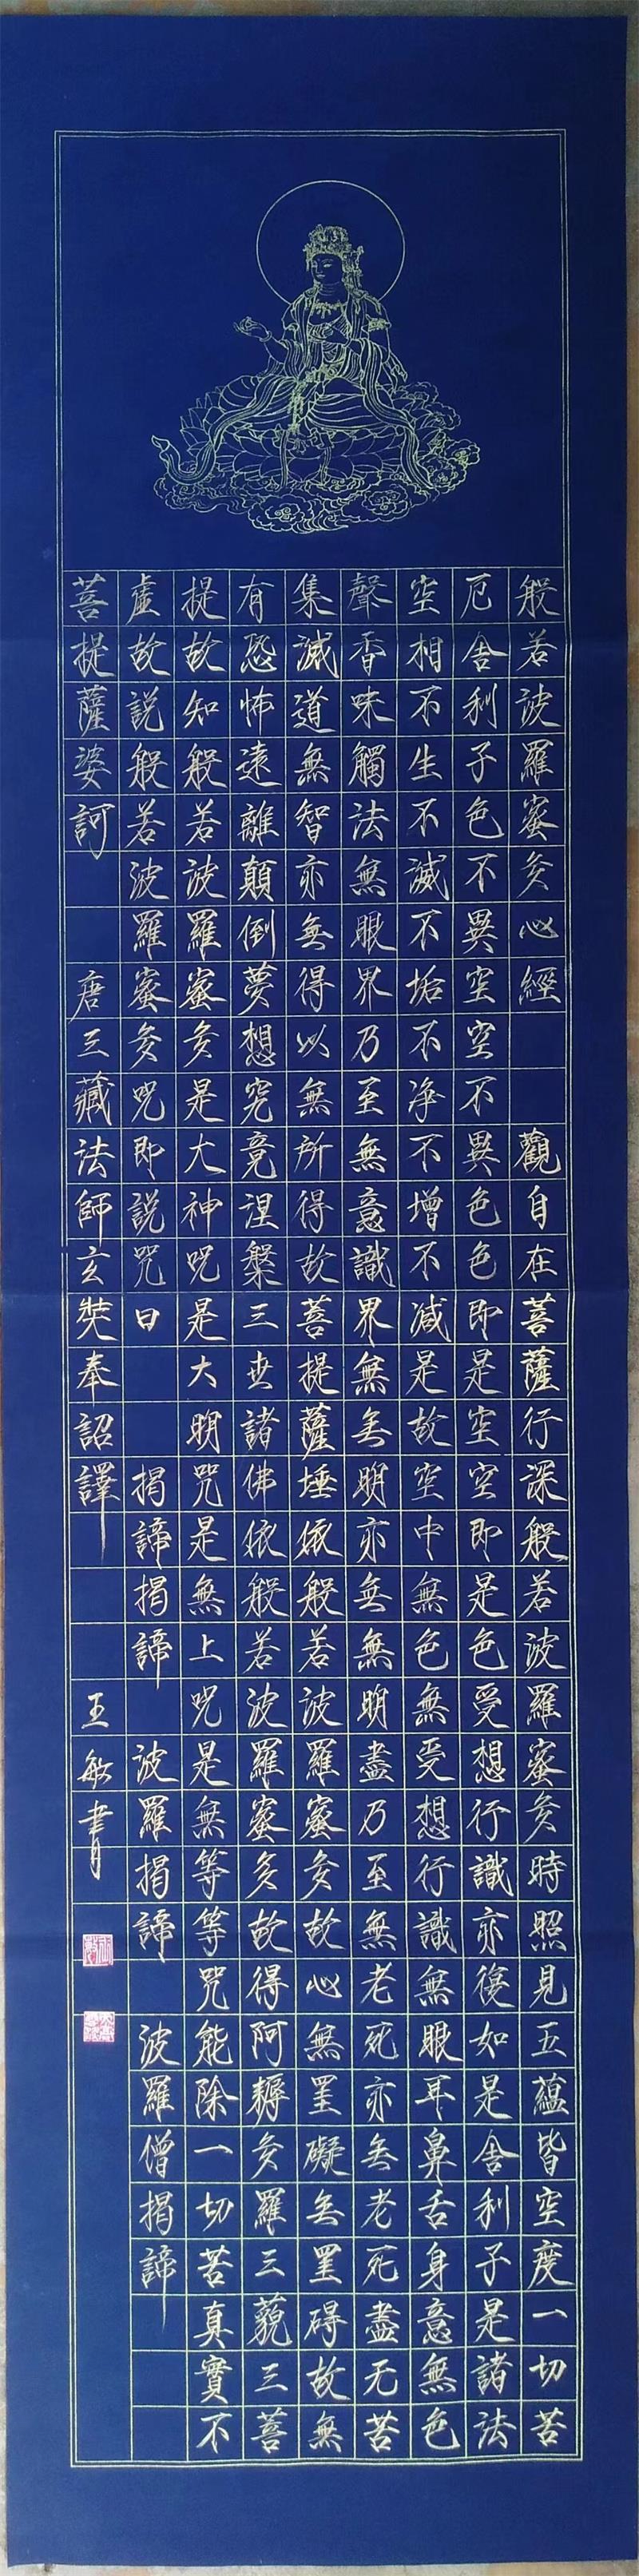 般若波羅蜜多心經 觀自在菩薩行深般若波羅蜜多時照見五蘊皆空度一切苦
厄舍利子色不異空空不異色色即是空空即是色受想行識亦復如是舍利子是諸法
空相不生不滅不垢不淨不增不減是故空中無色無受想行識無眼耳鼻舌身意無色
聲香味觸法無眼界乃至無意識界無無明亦無無明盡乃至無老死亦無老死盡无苦
集滅道無智亦無得以無所得故菩提薩埵依般若波羅蜜多故心無罣礙無罣碍故無
有恐怖遠離顛倒夢想究竟涅槃三世諸佛依般若波羅蜜多故得阿耨多羅三藐三菩
提故知般若波羅蜜多是大神咒是大明咒是無上咒是無等等咒能除一切苦真實不
虛故說般若波羅蜜多咒即說咒曰 揭諦揭諦 波羅揭諦 波羅僧揭諦
菩提薩婆訶 唐三藏法師玄奘奉詔譯 王敏書